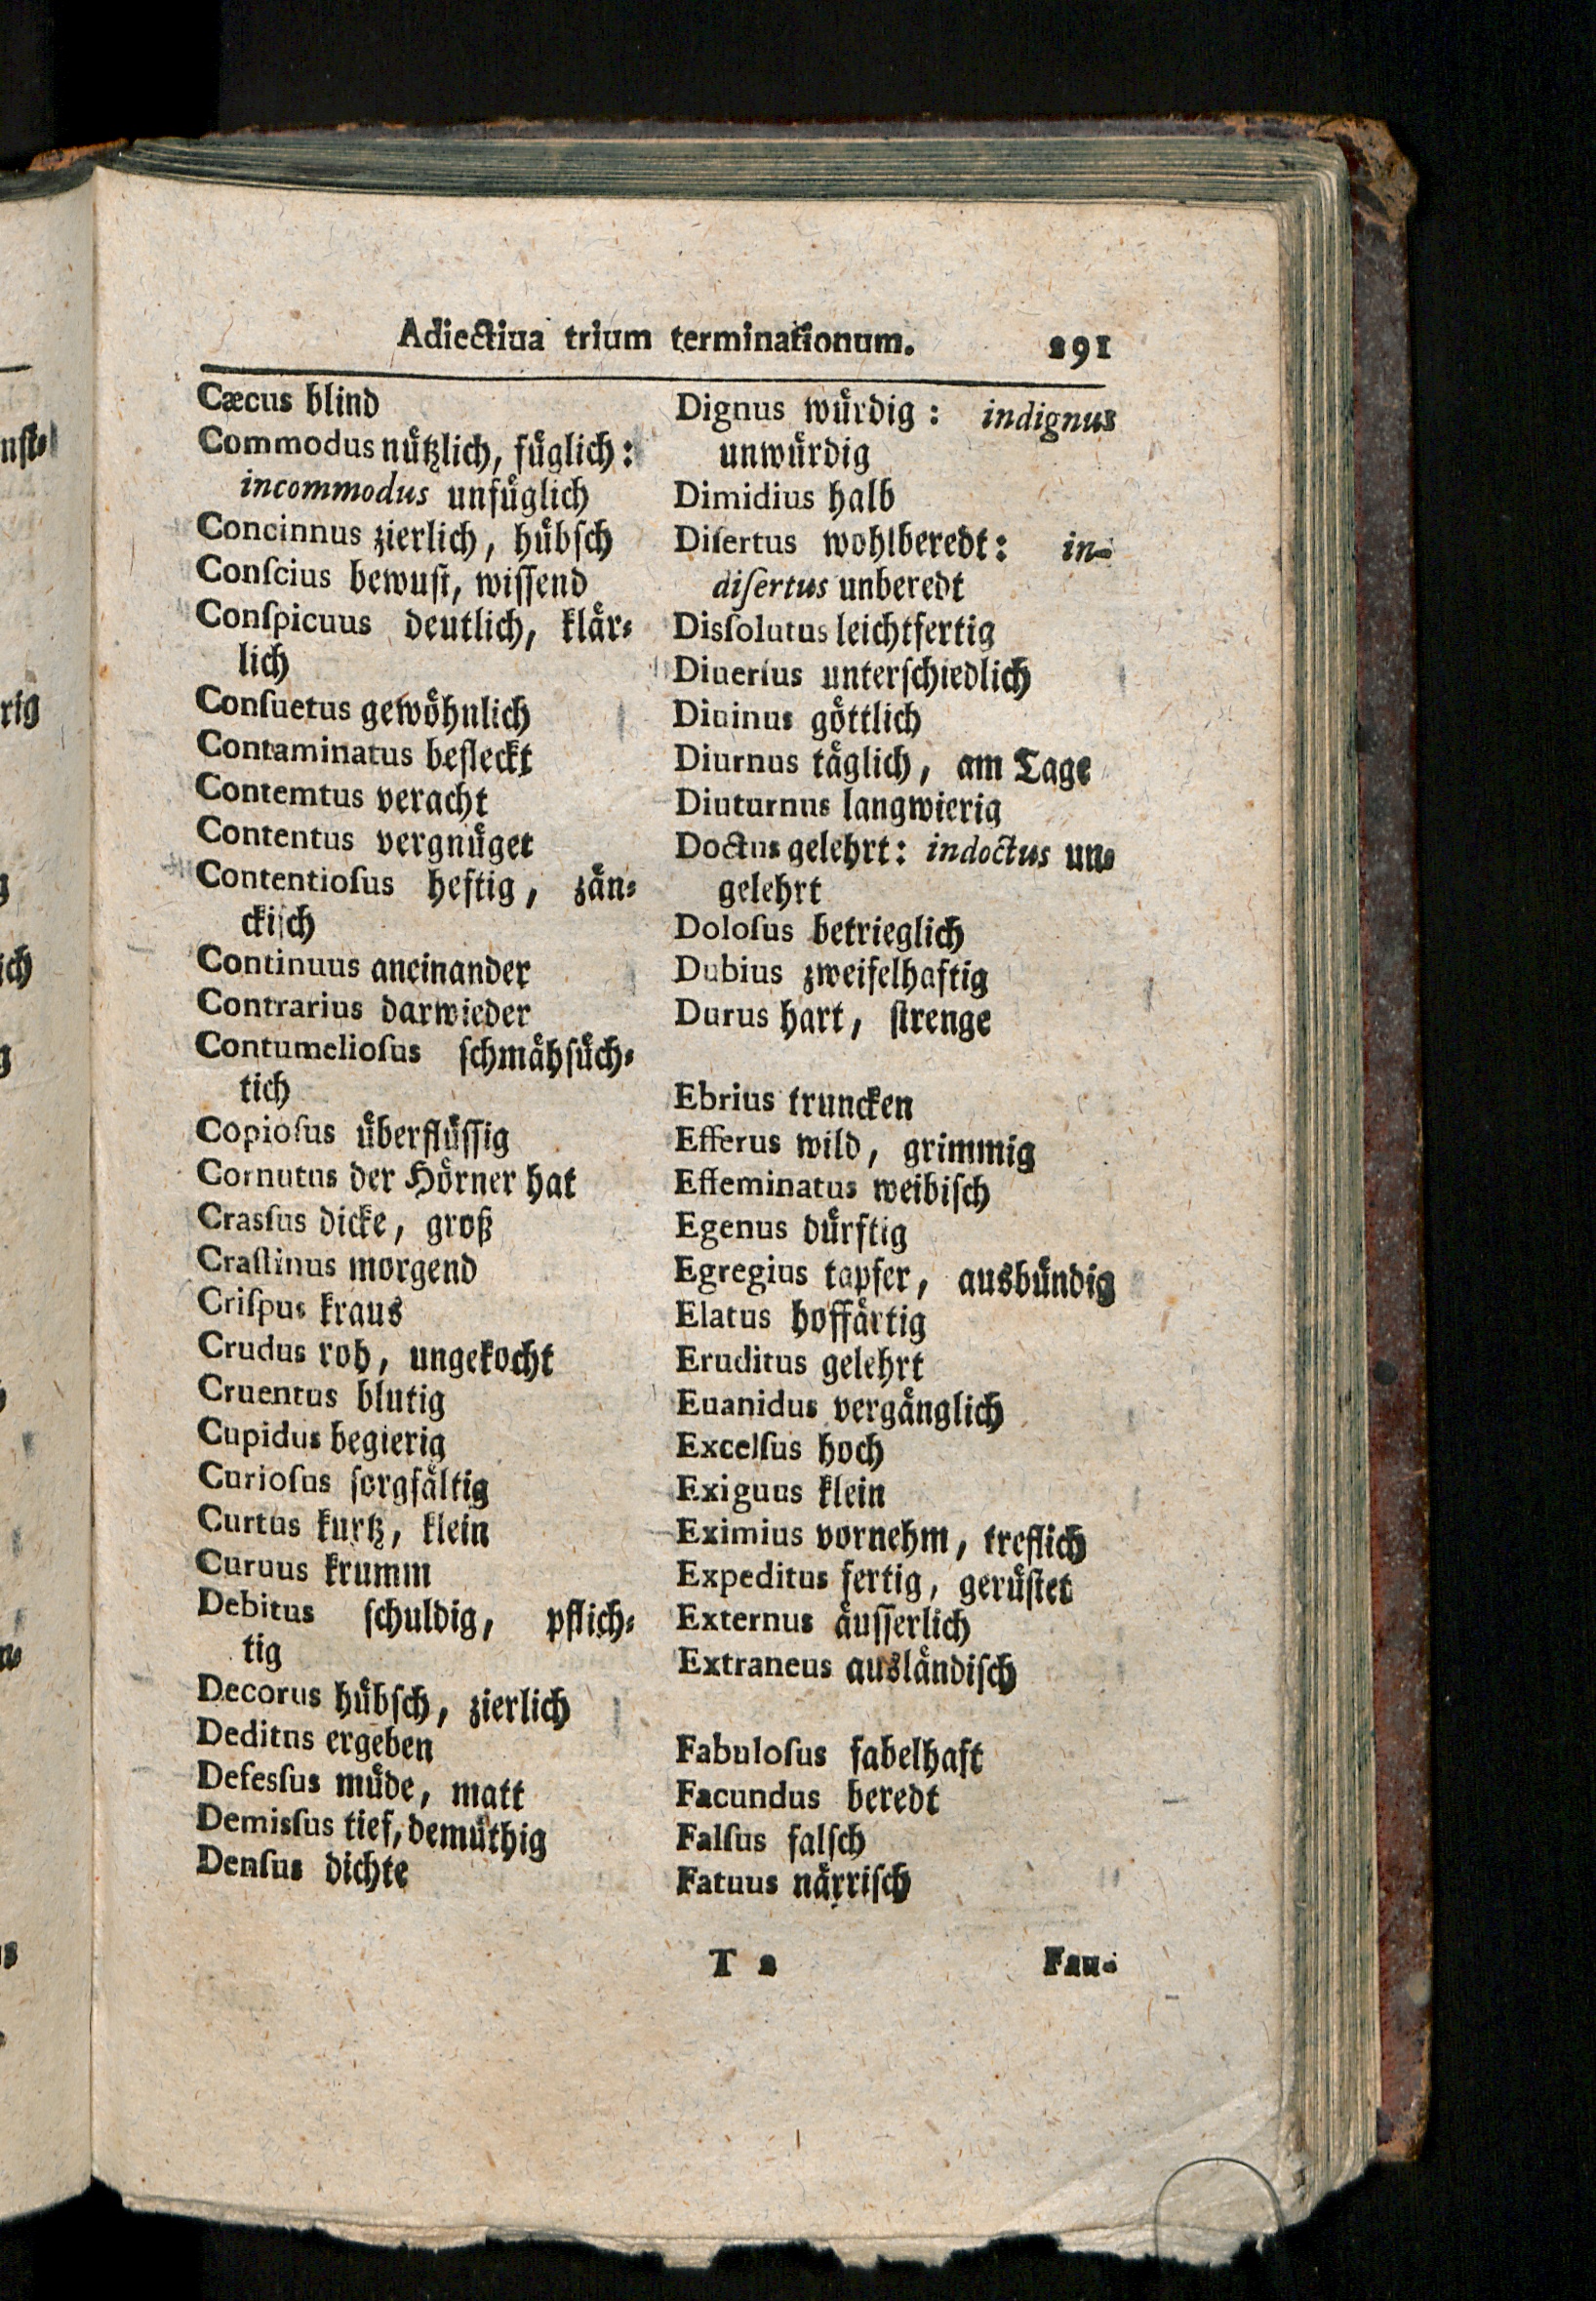 Adiectiua trium terminationum. 291
Cæcus blind
Commodus nützlich, füglich:
incommodus unfüglich
Concinnus zierlich, hübſch
Conſcius bewuſt, wiſſend
Conſpicuus deutlich, klär⸗
lich
Conſuetus gewöhnlich
Contaminatus befleckt
Contemtus veracht
Contentus vergnüget
Contentioſus heftig, zän⸗
ckiſch
Continuus aneinander
Contrarius darwieder
Contumelioſus ſchmähſüch⸗
tich
Copioſus überflüſſig
Cornutus der Hörner hat
Crasſus dicke, groß
Craſtinus morgend
Criſpus kraus
Crudus roh, ungekocht
Cruentus blutig
Cupidus begierig
Curioſus ſorgfältig
Curtus kurtz, klein
Curuus krumm
Debitus ſchuldig, pflich⸗
tig
Decorus hübſch, zierlich
Deditus ergeben
Defesſus müde, matt
Demisſus tief, demüthig
Denſus dichte
Dignus würdig: indignus
unwürdig
Dimidius halb
Diſertus wohlberedt: in-
diſertus unberedt
Disſolutus leichtfertig
Diuerſus unterſchiedlich
Diuinus göttlich
Diurnus täglich, am Tage
Diuturnus langwierig
Doctus gelehrt: indoctus un⸗
gelehrt
Doloſus betrieglich
Dubius zweifelhaftig
Durus hart, ſtrenge
Ebrius truncken
Efferus wild, grimmig
Effeminatus weibiſch
Egenus dürftig
Egregius tapfer, ausbündig
Elatus hoffärtig
Eruditus gelehrt
Euanidus vergänglich
Excelſus hoch
Exiguus klein
Eximius vornehm, treflich
Expeditus fertig, gerüſtet
Externus äuſſerlich
Extraneus ausländiſch
Fabuloſus fabelhaft
Facundus beredt
Falſus falſch
Fatuus närriſch
T 2 Fau-